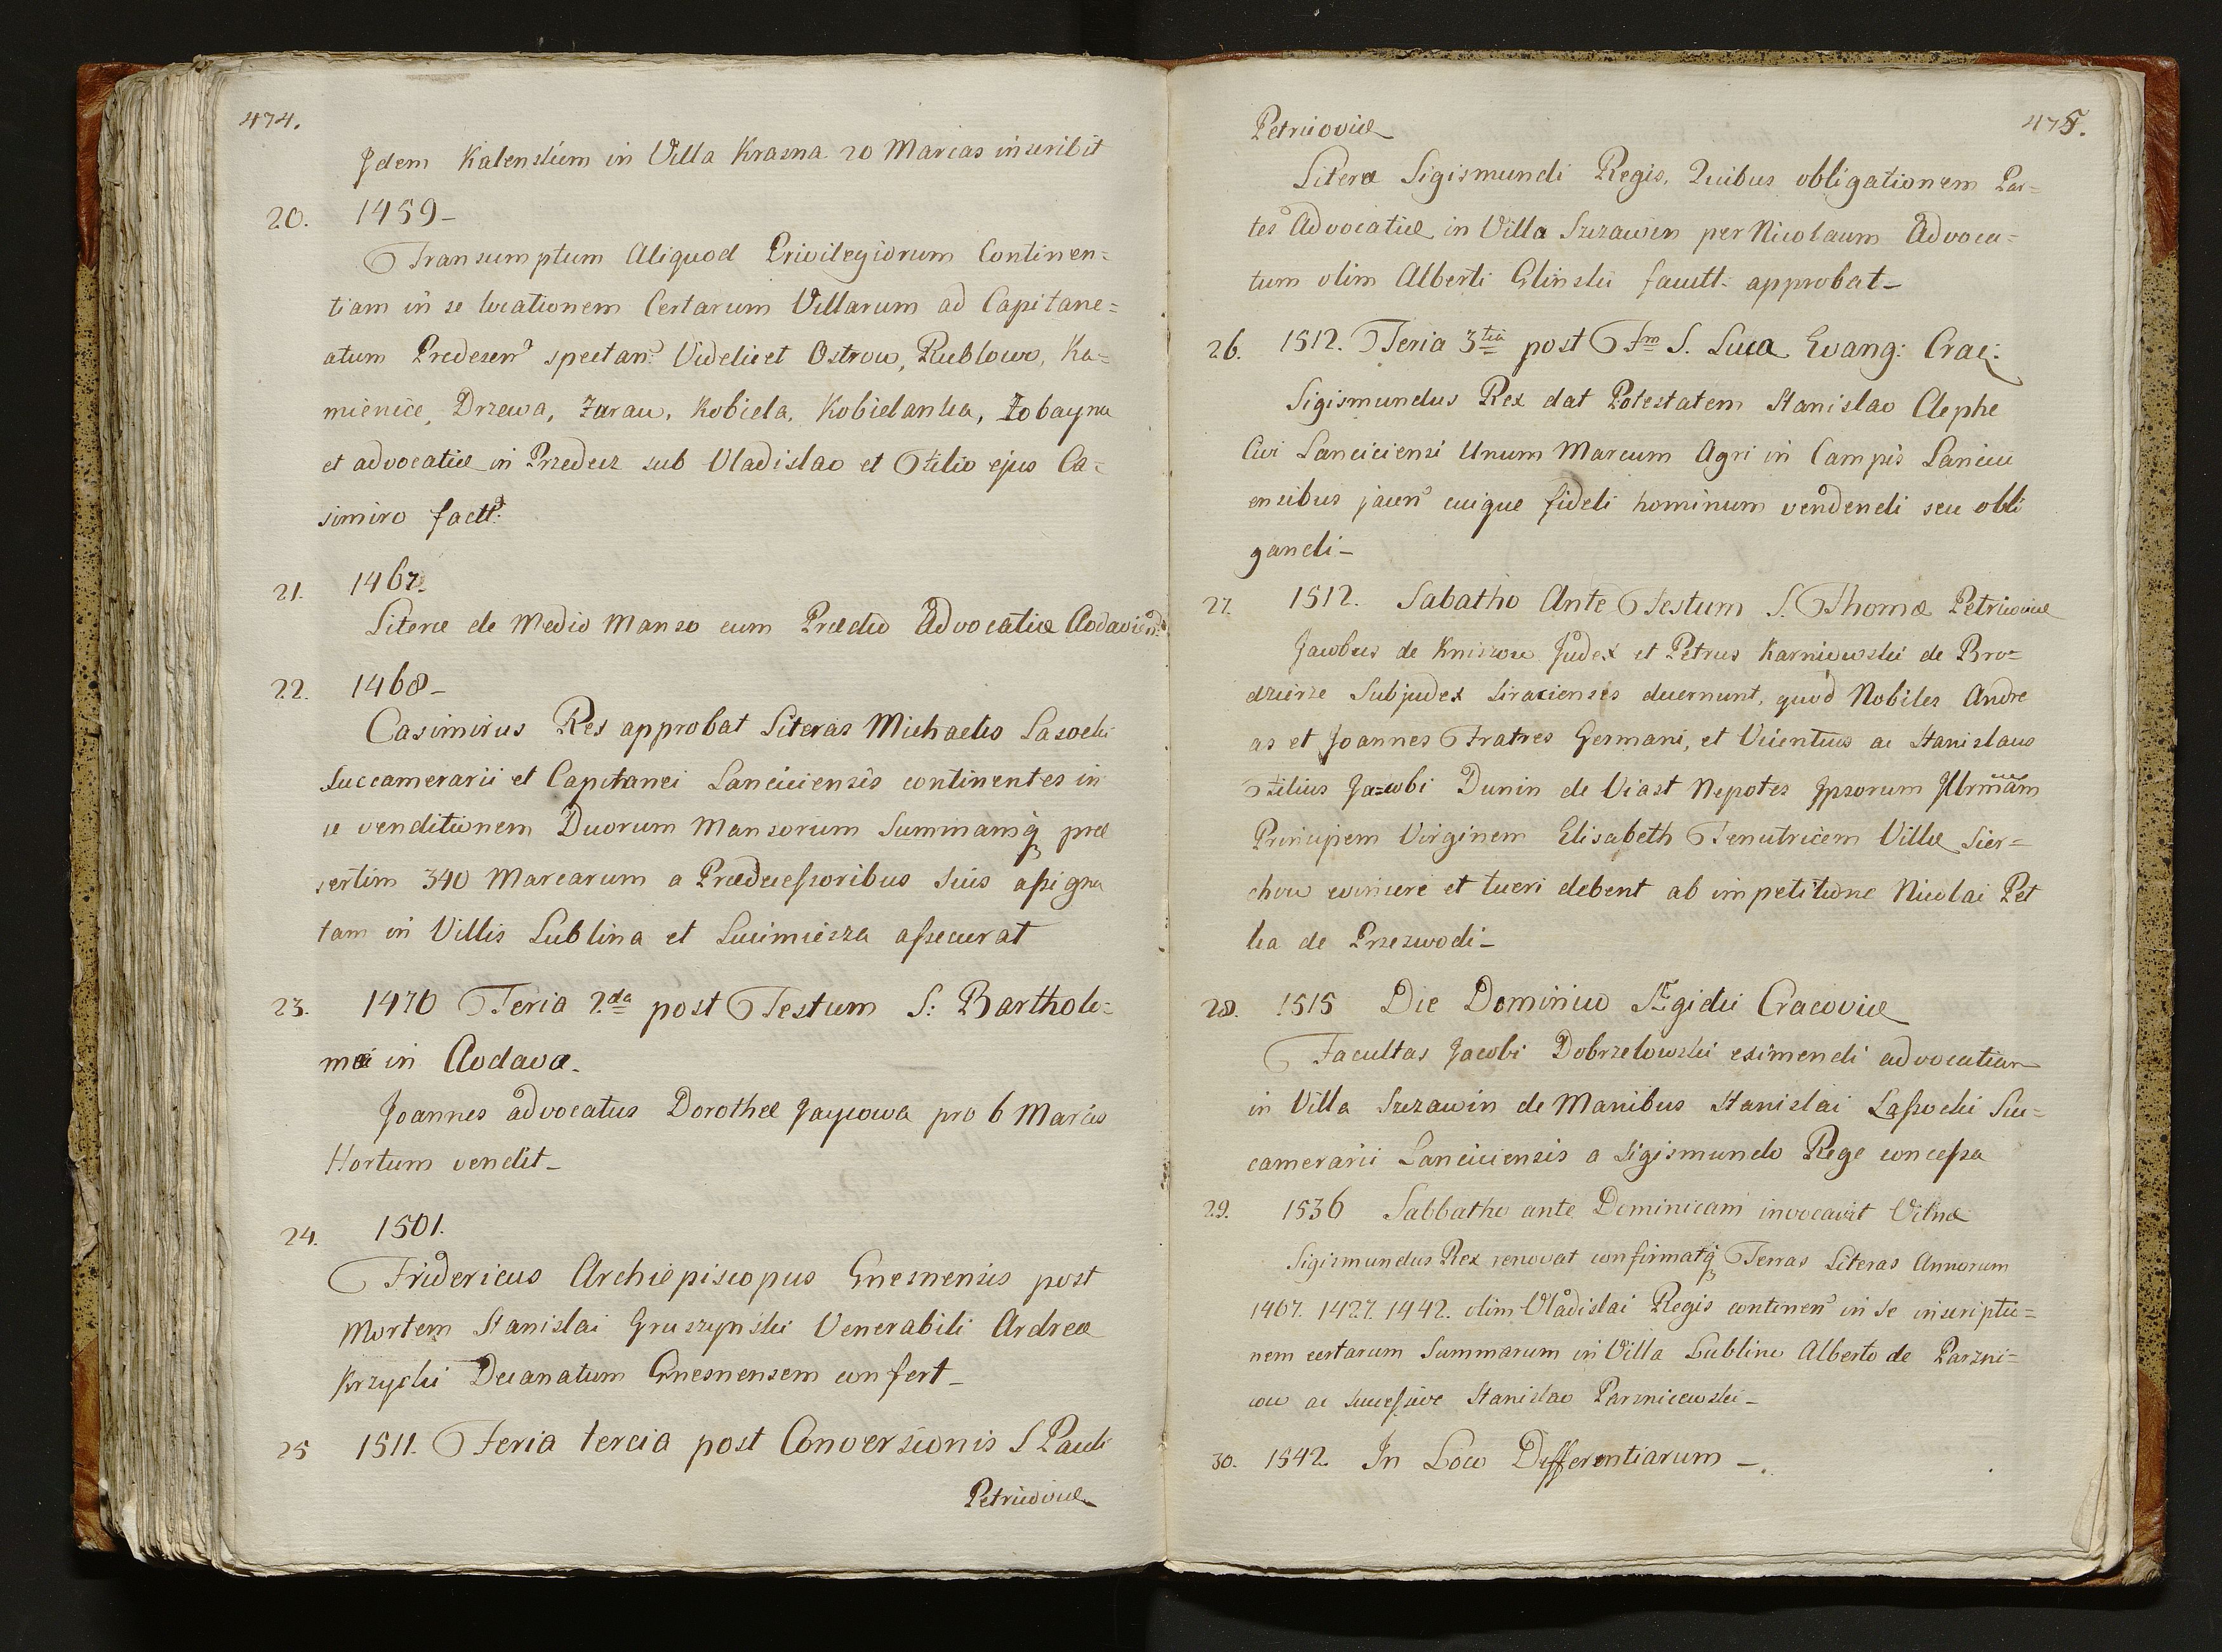 474.
Jdem Kalenskium in Villa Krasna 20 Marcas inscribit
20. 1459-
Transumptum Aliquod Privilegiorum Continen=
tiam in se locationem Certarum Villarum ad Capitane=
atum Predesen spectan: Videlicet Ostrow, Rublowo, Ka=
mienice, Drzewa, Zarau, Kobiela, Kobielanka,
et advocatiæ in Przedecz sub Vladislao et Filio ejus Ca=
simiro factt:
21. 1467.
Literæ de Medio Manso cum Prædio Advocatiæ
22. 1468-
Casimirus Rex approbat Literas Michaelis Lasocki
Succamerarii et Capitanei Lanciciensis continentes in
se venditionem Duorum Mansorum Summamq præ
sertim 340 Marcarum a Prædecessoribus Suis assigna
tam in Villis Lublina et assecurat
23. 1470 Feria 2.da post Festum S: Bartholo=
mæi in Clodava.
Joannes advocatus Dorotheæ Jaycowa pro 6 Marcis
Hortum vendit-
24. 1501.
Fridericus Archiepiscopus Gnesnensis post
Mortem Stanislai Gruszynski Venerabili Andreæ
Krzycki Decanatum Gnesnensem confert-
25 1511. Feria tercia post Conversionis S Pauli
Petricoviæ
Petricoviæ 475.
Literæ Sigismundi Regis, Quibus obligationem Par=
tes Advocatiæ in Villa Szczawin per Nicolaum Advoca=
tum olim Alberti Glinski factt: approbat-
26. 1512. Feria 3tia post Fm S. Lucæ Evang: Crac:
Sigismundus Rex dat Potestatem Stanislao Clephe
Civi Lanciciensi Unum Marcum Agri in Campis Lancici
ensibus jacen cuique fideli hominum vendendi seu obli
gandi-
27. 1512. Sabatho Ante Festum S. Thomæ Petricoviæ
Jacobus de Kniszow Judex et Petrus Karniowski de Bro=
dziesze Subjudex Siracienses decernunt, quod Nobiles Andre
as et Joannes Fratres Germani, et Vicentius ac Stanislaus
Filius Jacobi Dunin de Viast Nepotes Jpsorum Jllrmam
Principem Virginem Elisabeth Tenutricem Villæ Sier=
chow evincere et tueri debent ab impetitione Nicolai Pet
ka de Przezwodi-
28. 1515 Die Dominico Ægidii Cracoviæ
Facultas Jacobi Dobrzelowski eximendi advocatiam
in Villa Szczawin de Manibus Stanislai Lassocki Suc=
camerarii Lanciciensis a Sigismundo Rege concessa
29. 1536 Sabbatho ante Dominicam invocavit Vilnæ
Sigismundus Rex renovat confirmatq Ternas Literas Annorum
1407. 1427. 1442. olim Vladislai Regis continen in se inscriptio=
nem certarum Summarum in Villa Lublino Alberto de Parzni=
cow ac Successive Stanislao Parzniewski-
30. 1542. In Loco Differentiarum-